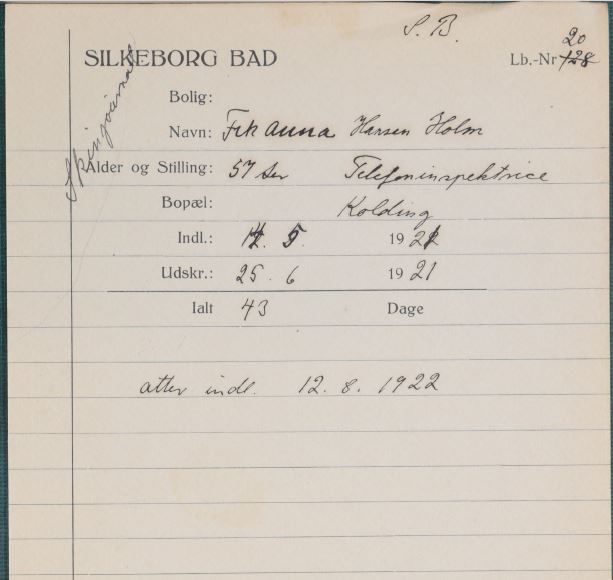 S. B.
20
SILKEBORG BAD Lb.-Nr 128
Bolig:
Navn: Frk Anna Hansen Holm
Alder og Stilling: 57 Aar Telefoninspektrice
Bopæl: Kolding
Indl.: 14. 5. 1921
Udskr.: 25. 6 1921
Ialt 43 Dage
atter indl. 12. 8. 1922